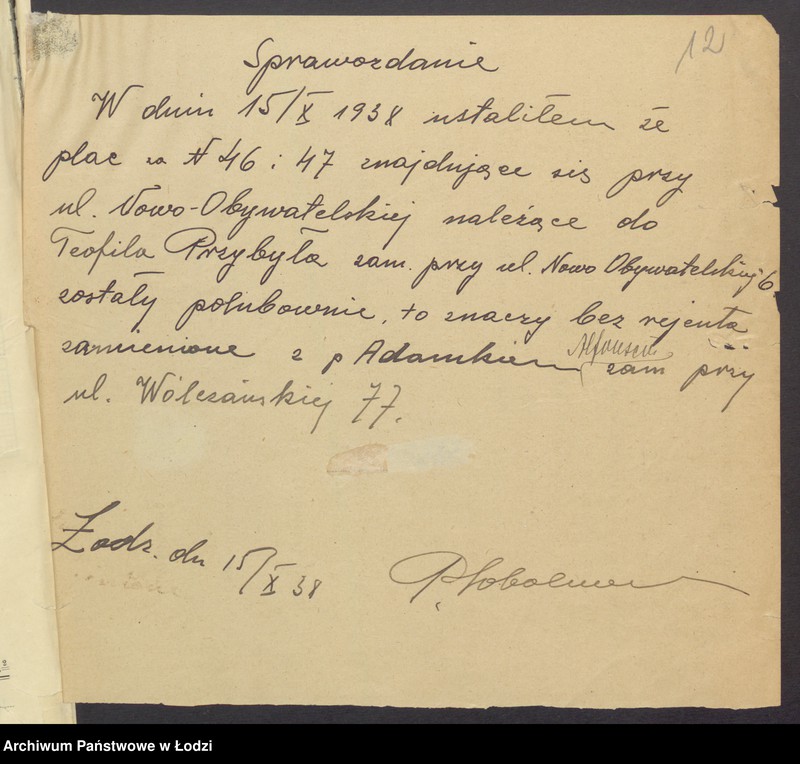 12
Sprawozdanie
W dniu 15/X 1938 ustaliłem że
plac za N 46 i 47 znajdujące się przy
ul. Nowo-Obywatelskiej należące do
Teofila Przybyła zam. przy ul. Nowo Obywatelskiej 6
zostały polubownie, to znaczy bez rejenta
zamienione z p Adamkiem Alfonsem zam przy
ul. Wólczańskiej 77.
Łódz. dn 15/X 38
Archiwum Państwowe w Łodzi